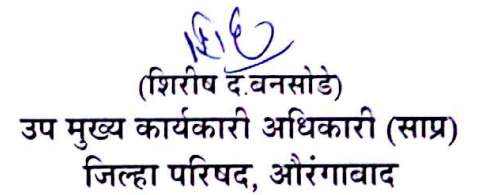 (शिरीष द.बनसोडे)
उप मुख्य कार्यकारी अधिकारी (साप्र)
जिल्हा परिषद, औरंगाबाद